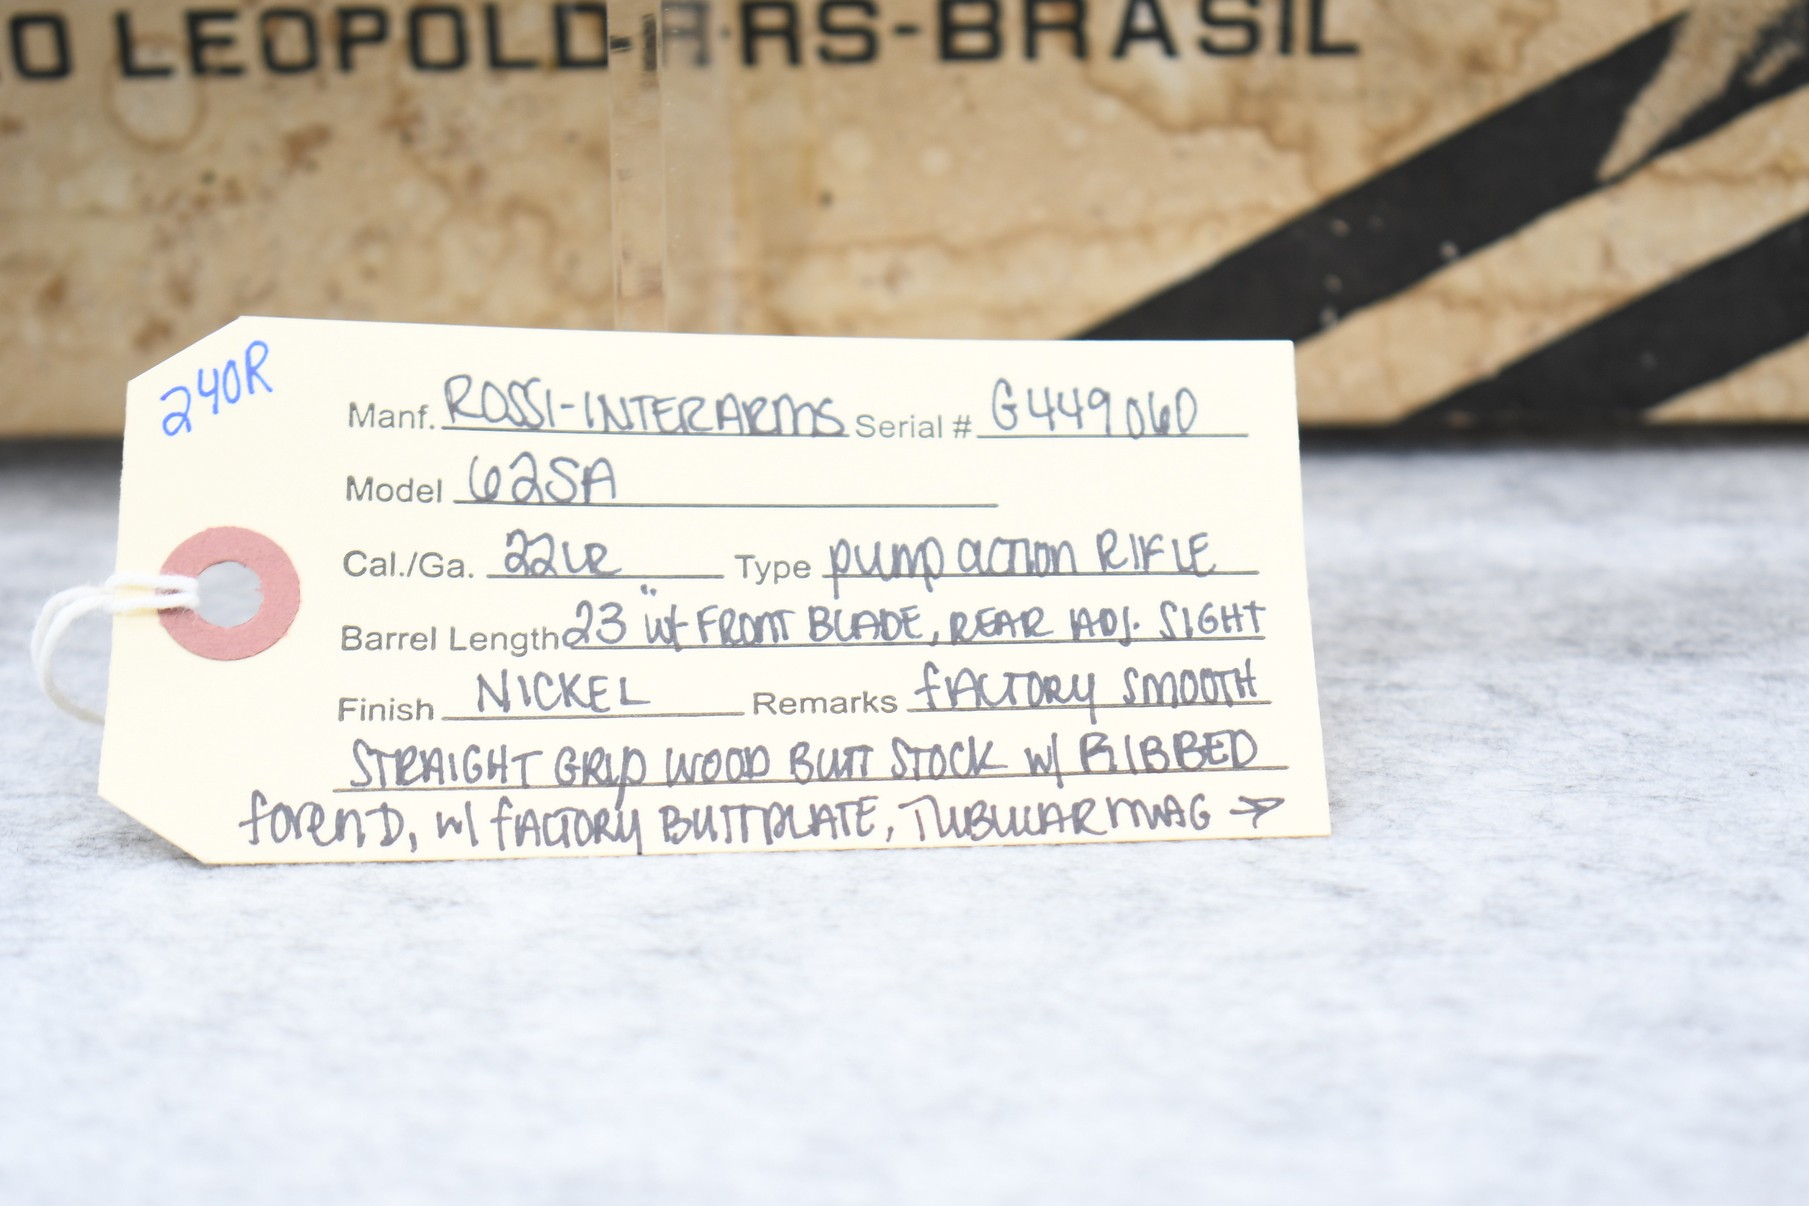 O LEOPOLDO-RS-BRASIL
240R
Manf. ROSSI-INTERARMS Serial # G449060
Model 62SA
Cal./Ga. 22LR Type pump action RIFLE
Barrel Length 23" w/ FRONT BLADE, REAR ADJ. SIGHT
Finish NICKEL Remarks fACTORY SMOOTH
STRAIGHT GRIP WOOD BUTT STOCK w/ RIBBED
forenD, w/ fACTORY BUTTPLATE, TUBULAR MAG →